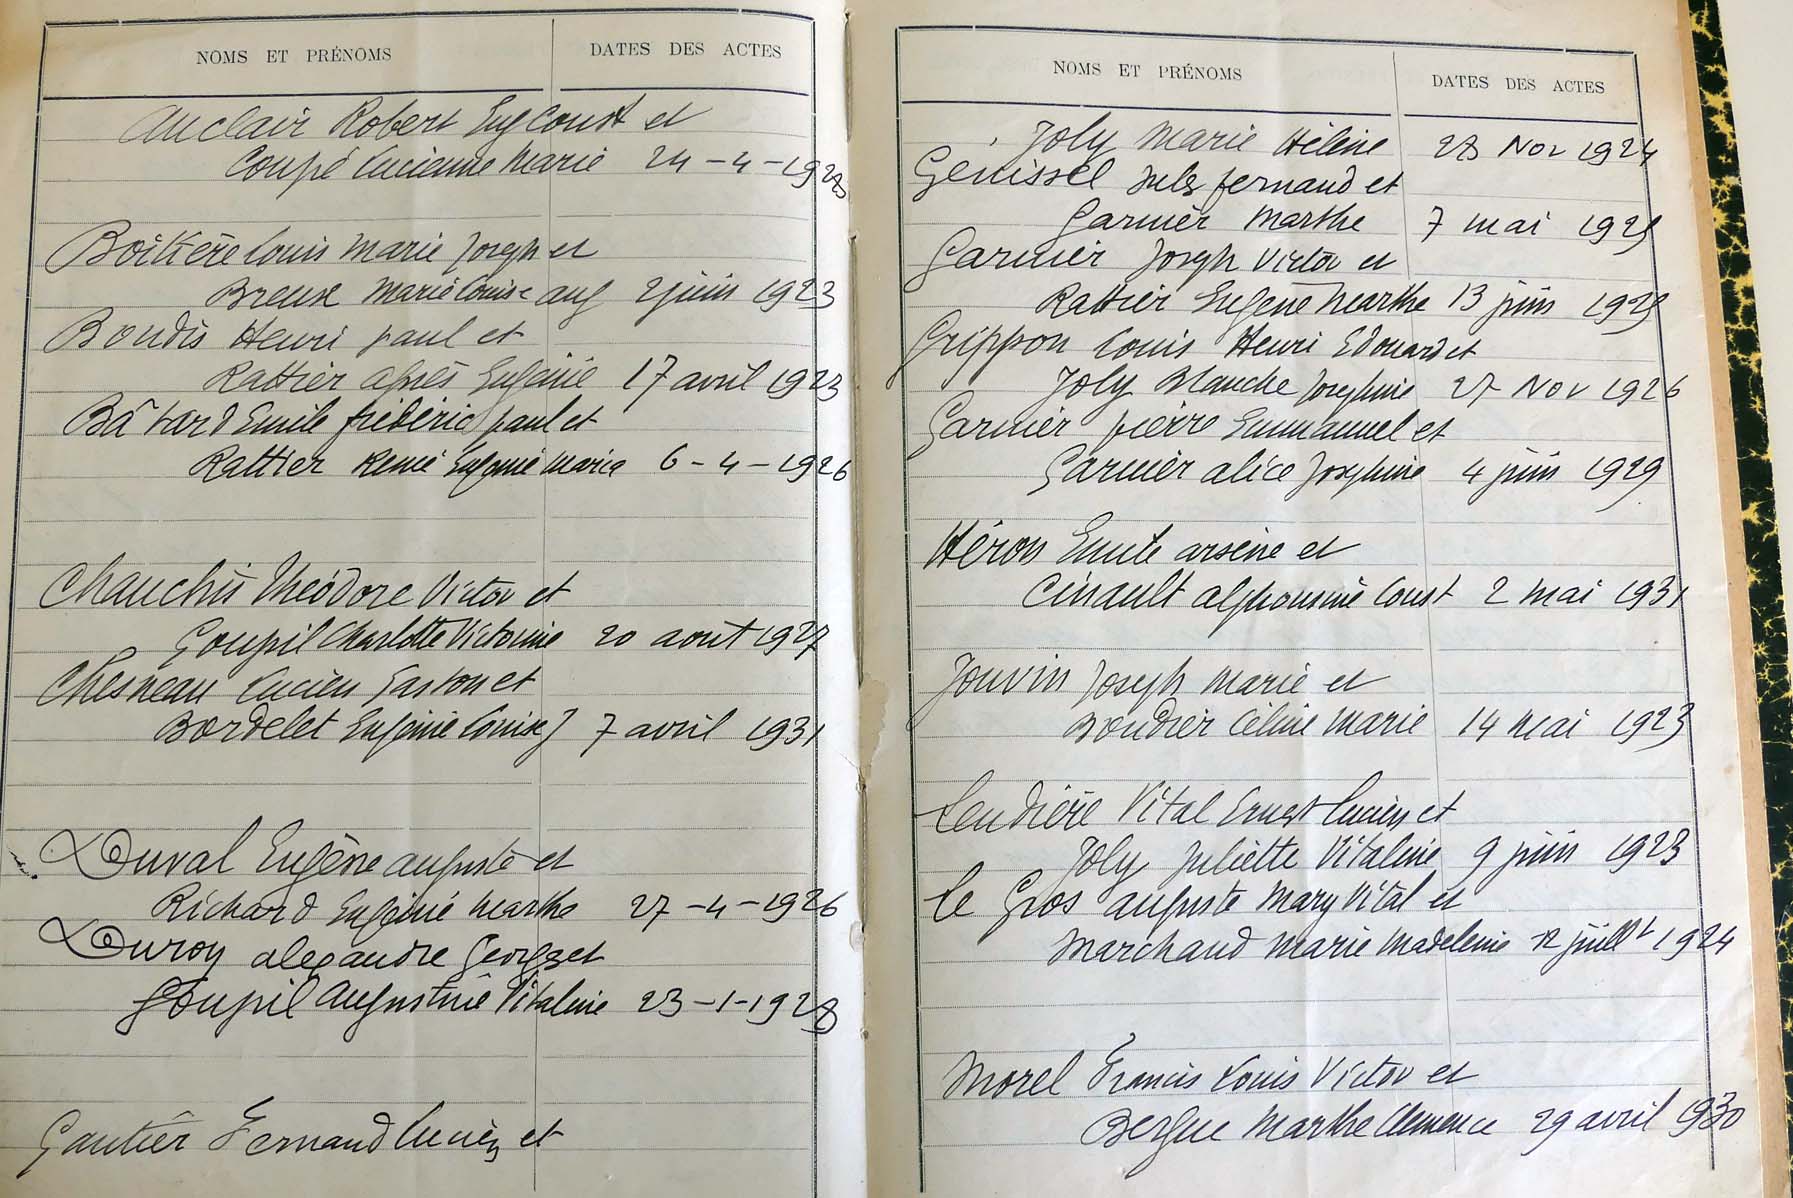 NOMS ET PRÉNOMS DATES DES ACTES
Auclair Robert Eug Const et
Coupé Lucienne Marie 24-4-1928
Boittère Louis Marie Joseph et
Breux Marie Louise Aug 2 juin 1923
Boudis Henri paul et
Rattier Agnès Eugénie 17 avril 1923
Bâtard Emile frédéric paul et
Rattier Renée Eugénie Maria 6-4-1926
Chauchis Théodore Victor et
Goupil Charlotte Victorine 20 aout 1927
Chesneau Lucien Gaston et
Bordelet Eugénie Louise J 7 avril 1931
Duval Eugène auguste et
Richard Eugénie Marthe 27-4-1926
Duroy alexandre Georges et
Goupil Augustine Vitaline 23-1-1928
Gautier Fernand Lucien et
NOMS ET PRÉNOMS DATES DES ACTES
Joly Marie Hélène 28 Nov 1924
Genissel Jules fernand et
Garnier Marthe 7 mai 1925
Garnier Joseph Victor et
Rattier Eugène Marthe 13 juin 1925
Grippon Louis Henri Edouard et
Joly Blanche Josephine 27 Nov 1926
Garnier pierre Emmanuel et
Garnier alice Josephine 4 juin 1929
Héron Emile arsène et
alphonsine Const 2 mai 1931
Jouvin Joseph Marie et
Boudier Céline Marie 14 mai 1923
Lendière Vital Ernest Lucien et
Joly Juliette Vitaline 9 juin 1923
Le Gros auguste Mary Vital et
Marchand Marie Madeleine 12 juillt 1924
Morel Francis Louis Victor et
Bergue Marthe Clemence 29 avril 1930